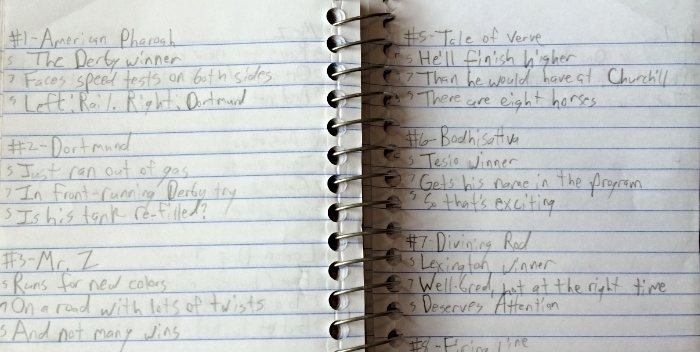 #1-American Pharoah
5 The Derby winner
7 Faces speed tests on both sides
5 Left: Rail. Right: Dortmund
#2-Dortmund
5 Just ran out of gas
7 In front-running Derby try
5 Is his tank re-filled?
#3-Mr. Z
5 Runs for new colors
7 On a road with lots of twists
5 And not many wins
#5-Tale of Verve
5 He'll finish higher
7 Than he would have at Churchill
5 There are eight horses
#6-Bodhisattva
5 Tesio winner
7 Gets his name in the program
5 So that's exciting
#7-Divining Rod
5 Lexington winner
7 Well-bred, hot at the right time
5 Deserves Attention
#8-Firing Line